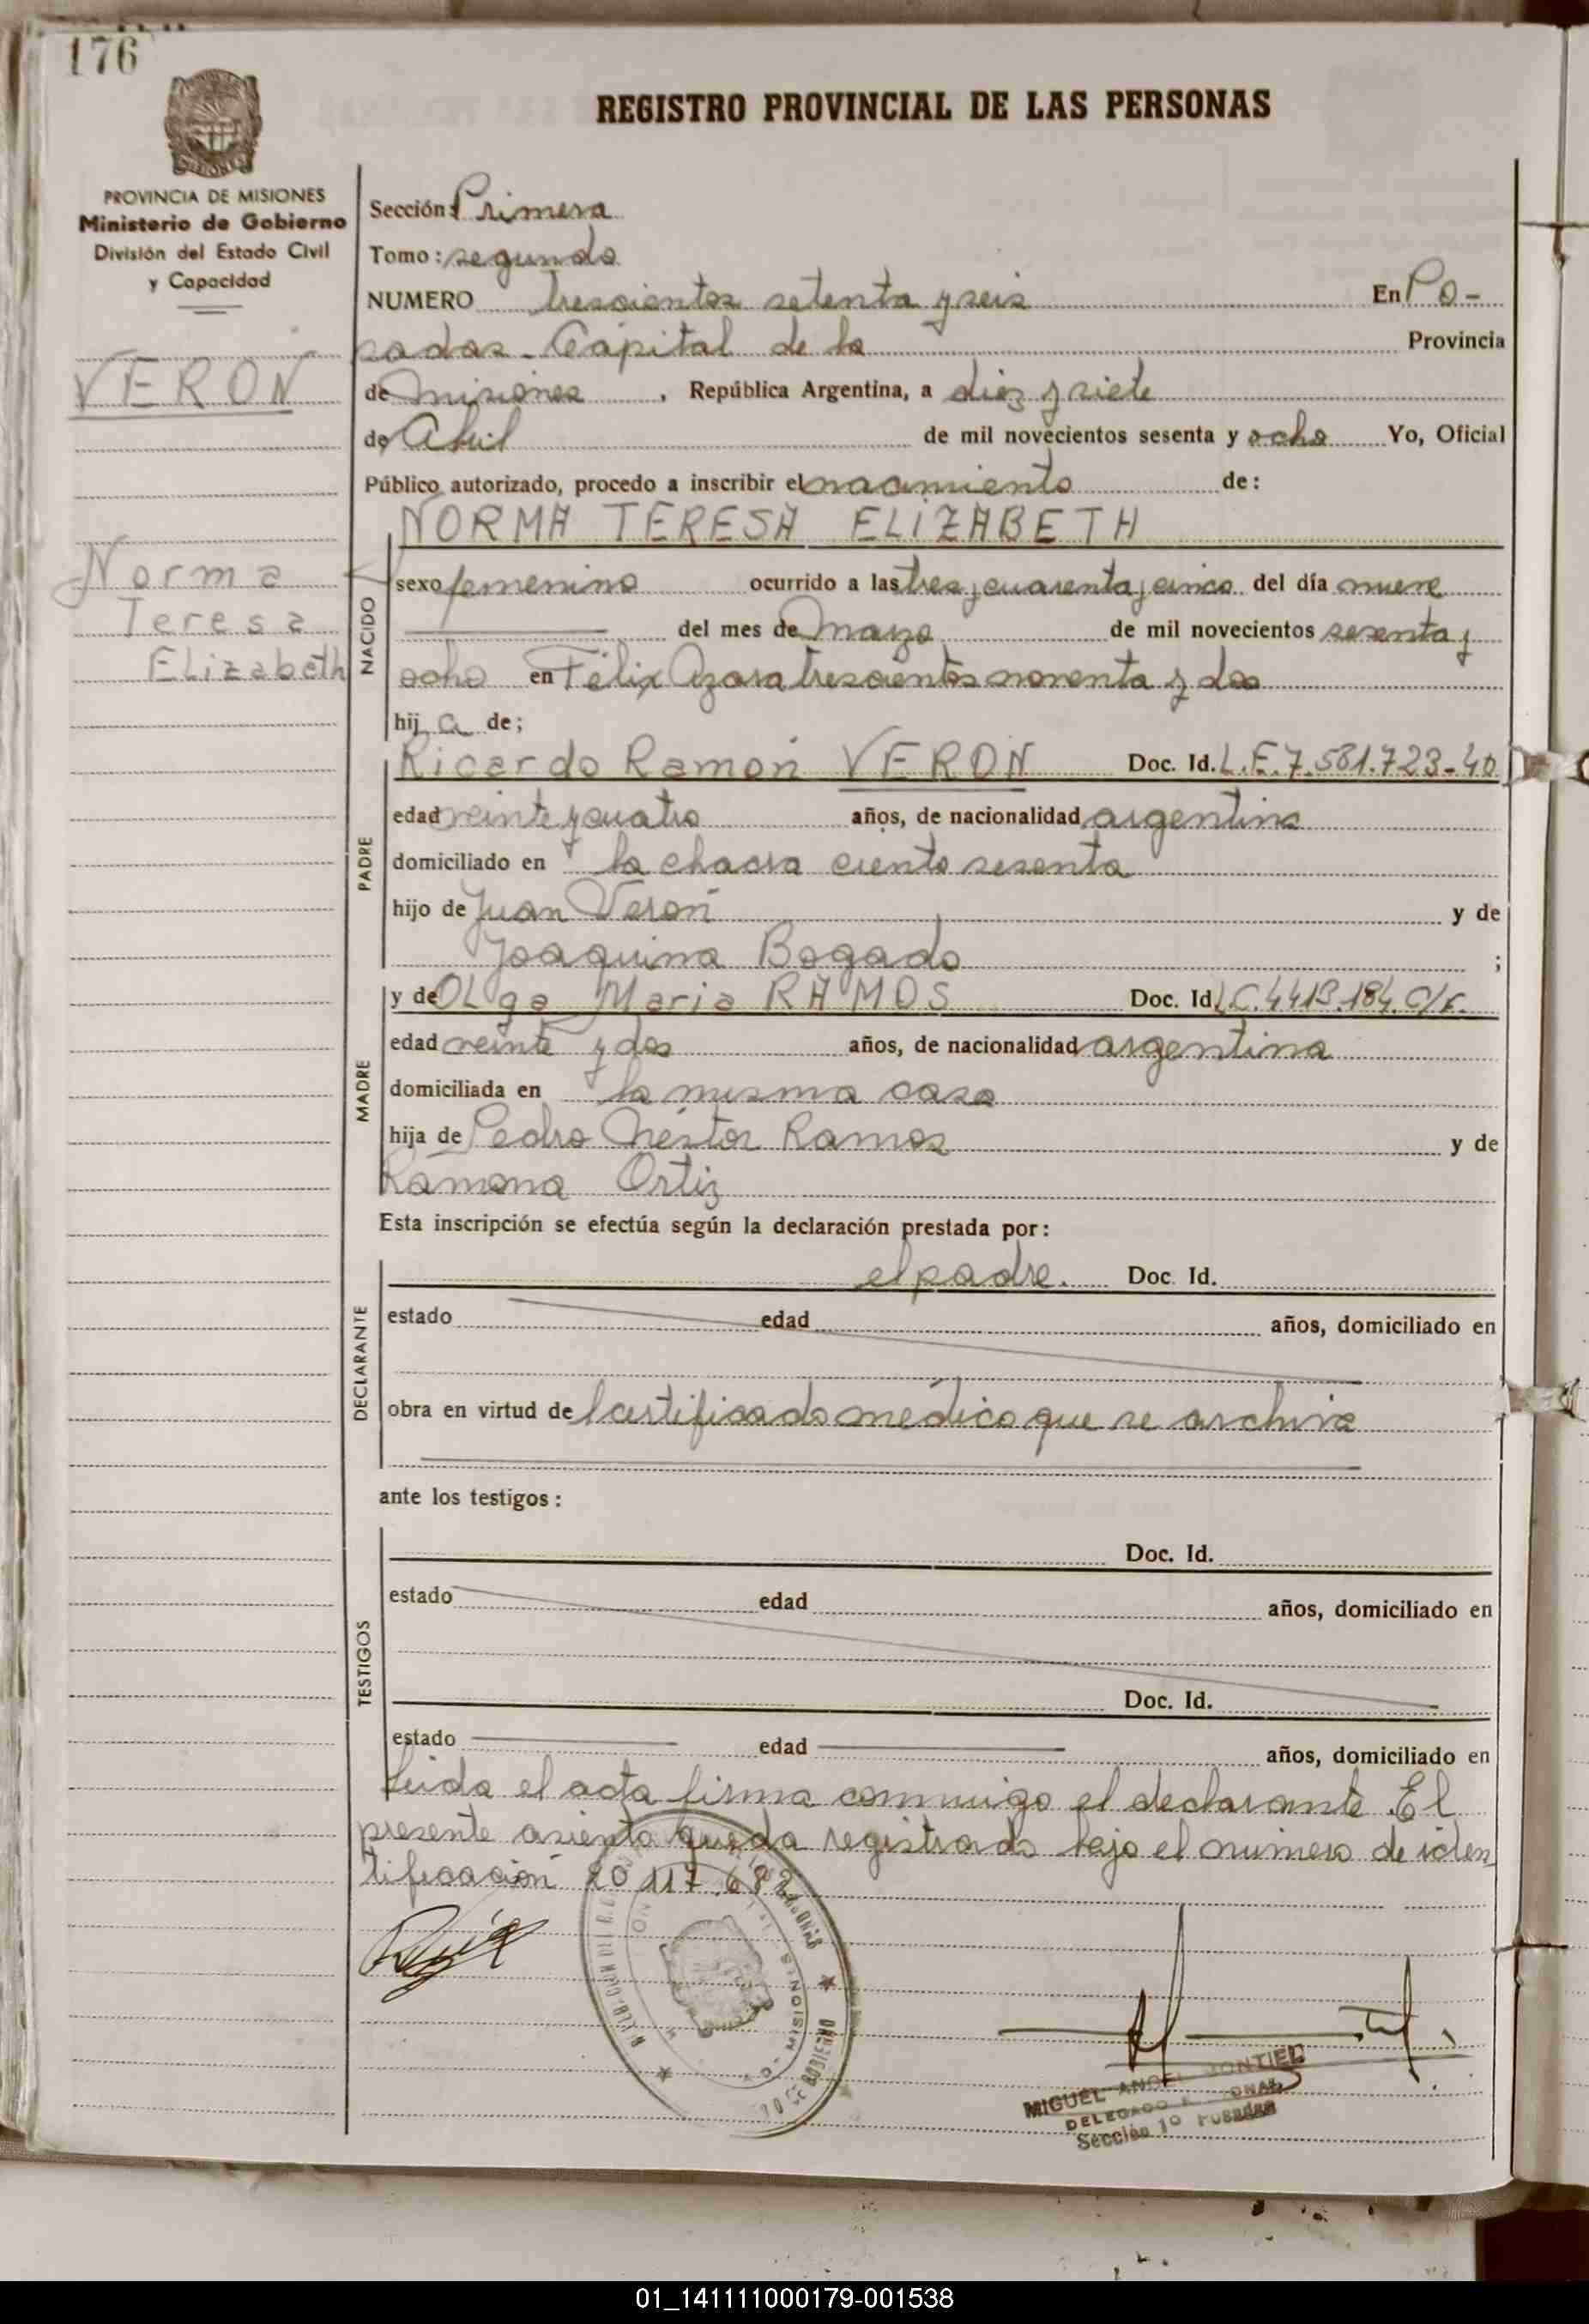 176
REGISTRO PROVINCIAL DE LAS PERSONAS
MISIONES
PROVINCIA DE MISIONES
Ministerio de Gobierno
División del Estado Civil
y Capacidad
VERON
Norma
Teresa
Elizabeth
Sección: Primera
Tomo: segundo
NUMERO trescientos setenta y seis En Po-
sadas. Capital de la Provincia
de Misiones, República Argentina, a diez y siete
de Abril de mil novecientos sesenta y ocho Yo, Oficial
Público autorizado, procedo a inscribir el nacimiento de:
NACIDO
NORMA TERESA ELIZABETH
sexo femenino ocurrido a las tres y cuarenta y cinco del día nueve
del mes de Marzo de mil novecientos sesenta y
ocho en Félix Azara trescientos noventa y dos
hij a de;
PADRE
Ricardo Ramón VERON Doc. Id. L.E.7.581.723-40
edad veinte y cuatro años, de nacionalidad argentina
domiciliado en la chacra ciento sesenta
hijo de Juan Verón y de
Joaquina Bogado ;
MADRE
y de Olga Maria RAMOS Doc. Id. L.C.4413.184.C/F.
edad veinte y dos años, de nacionalidad argentina
domiciliada en la misma casa
hija de Pedro Néstor Ramos y de
Ramona Ortiz
Esta inscripción se efectúa según la declaración prestada por:
DECLARANTE
el padre. Doc. Id.
estado edad años, domiciliado en
obra en virtud del certificado médico que se archiva
ante los testigos:
TESTIGOS
Doc. Id.
estado edad años, domiciliado en
Doc. Id.
estado edad años, domiciliado en
Leida el acta firma conmigo el declarante. El
presente asiento queda registrado bajo el número de iden
tificación 20 117.682
MISIONES
GOBIERNO
MIGUEL ANGEL MONTIEL
DELEGADO
Sección 1º Posadas
01_141111000179-001538